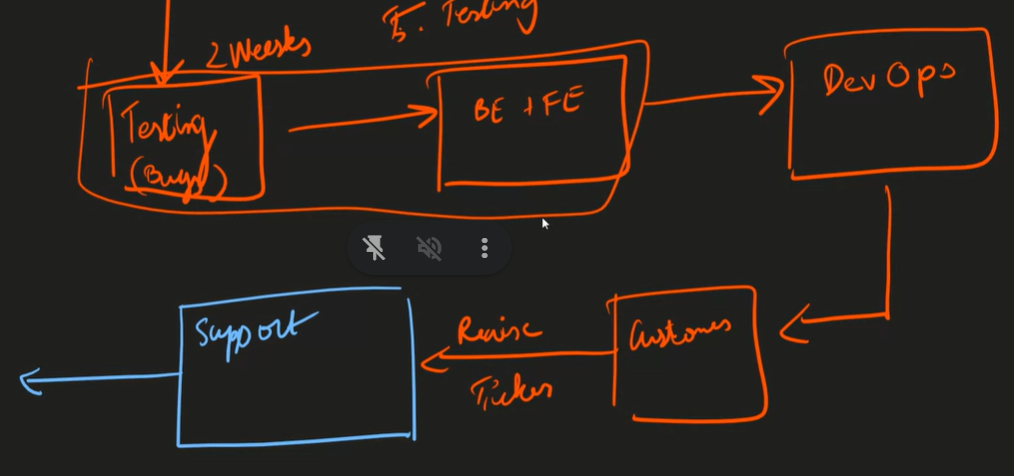 5. Testing
2 Weeks
Testing
(Bugs)
BE + FE
DevOps
Support
Raise
Ticket
Customer